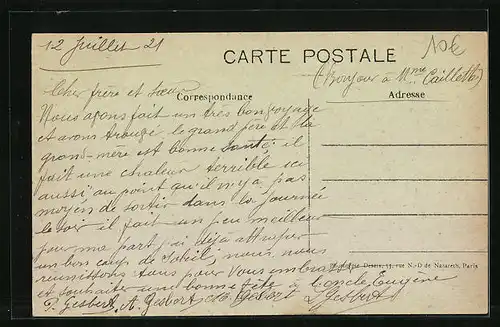 12 Juillet 21
CARTE POSTALE
10€
(Bonjour à Mme Caillette)
Correspondance
Adresse
Cher frère et sœur
Nous avons fait un très bon voyage
et avons trouvé le grand père et la
grand-mère est bonne santé; il
fait une chaleur terrible ici
aussi au point qu'il n'y a pas
moyen de sortir dans la journée
le soir il fait un peu meilleur
pour ma part j'ai déjà attraper
un bon coup de soleil, nous nous
réunissons tous pour vous embrasser
et souhaiter une bonne fête à l'oncle Eugène
P. Gesbert, A. Gesbert, Gesbert L Gesbert
rue N.-D de Nazareth, Paris